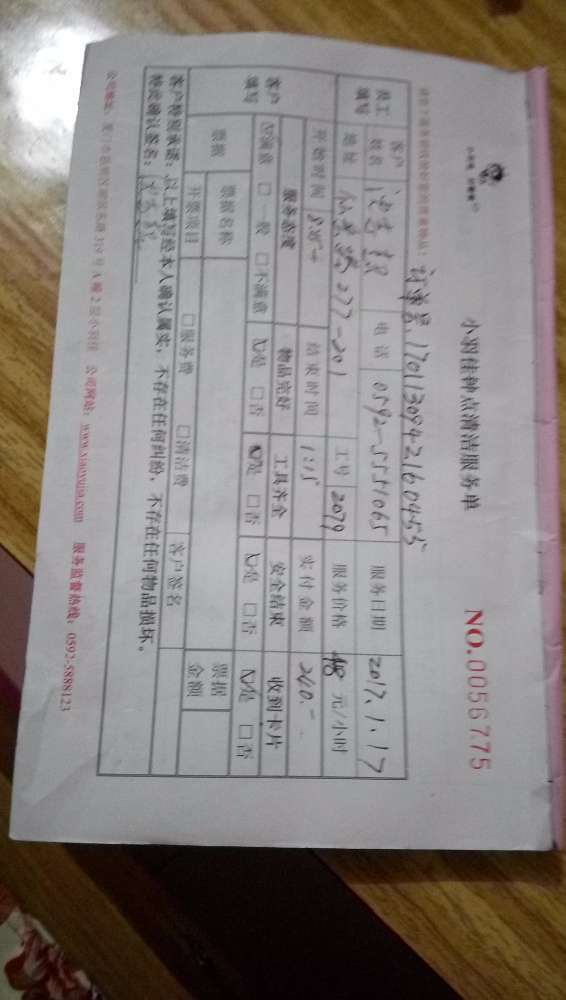 小羽佳钟点清洁服务单
NO.0056775
订单号:1701130942160455
员工填写 客户姓名 电话 0592-5551065 服务日期 2017.1.17
地址 仙岳路277-201 工号 2079 服务价格 48 元/小时
客户填写 开始时间 8:15 结束时间 1:15 实付金额 240.-
服务态度 物品完好 工具齐全 安全结束 收到卡片
☑满意 □一般 □不满意 ☑是 □否 ☑是 □否 ☑是 □否 ☑是 □否
票据 票据名称 票据金额
开票项目 □服务费 □清洁费 客户签名
客户特别承诺:以上填写经本人确认属实,不存在任何纠纷,不存在任何物品损坏。
特此确认签名:
号A幢2层小羽佳 公司网站:www.xiaoyujia.com 服务监督热线:0592-5888123